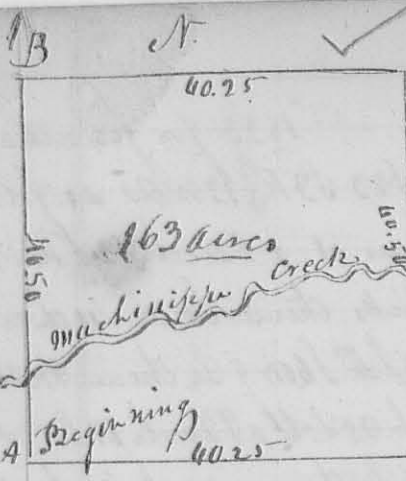 B N.
40.25
163 acres
40.50
40.50
Machinippe Creek
A Beginning
40.25